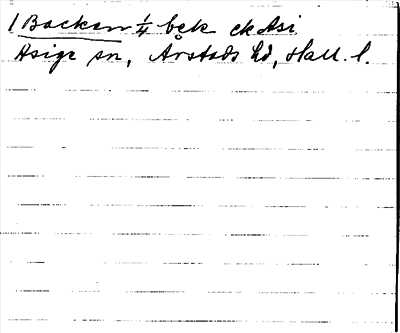 1 Backen 1/4 bęk ek Asi
Asige sn, Årstads hd, Hall. l.